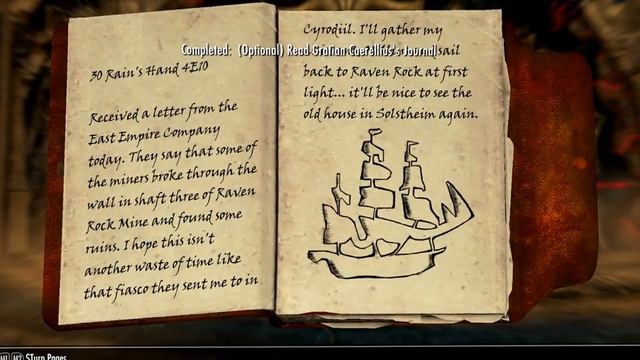 30 Rain's Hand 4E10
Received a letter from the
East Empire Company
today. They say that some of
the miners broke through the
wall in shaft three of Raven
Rock Mine and found some
ruins. I hope this isn't
another waste of time like
that fiasco they sent me to in
Cyrodiil. I'll gather my
Completed: (Optional) Read Gratian Caerellius's Journal
sail
back to Raven Rock at first
light... it'll be nice to see the
old house in Solstheim again.
Turn Pages